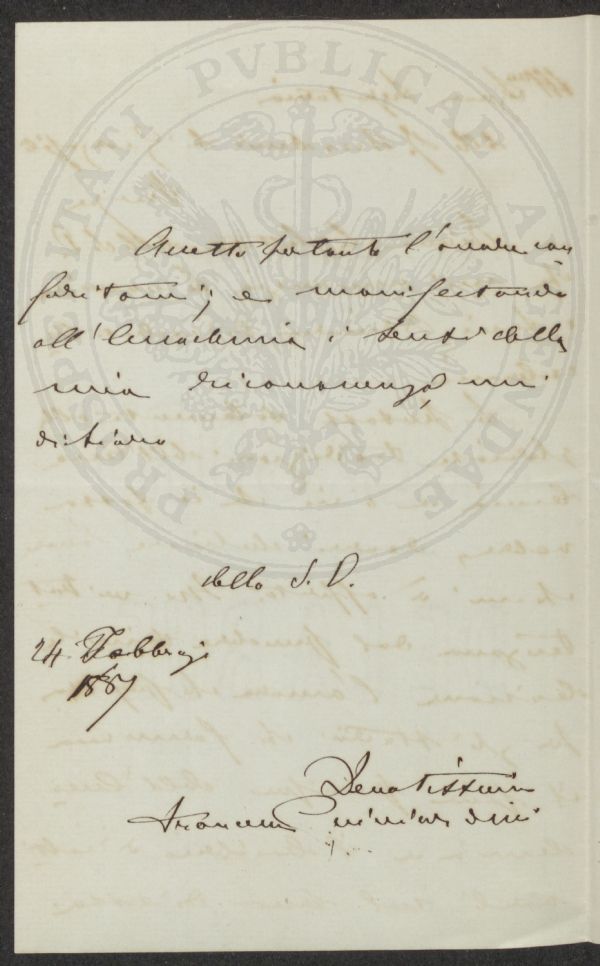 PROSPERITATI PUBLICAE AUGENDAE
Accetto pertanto l'onore con
feritomi; e manifestando
all'Accademia i sensi della
mia riconoscenza, mi
dichiaro
della S. V.
24 Febbraio
1887
Devotissimo
Francesco